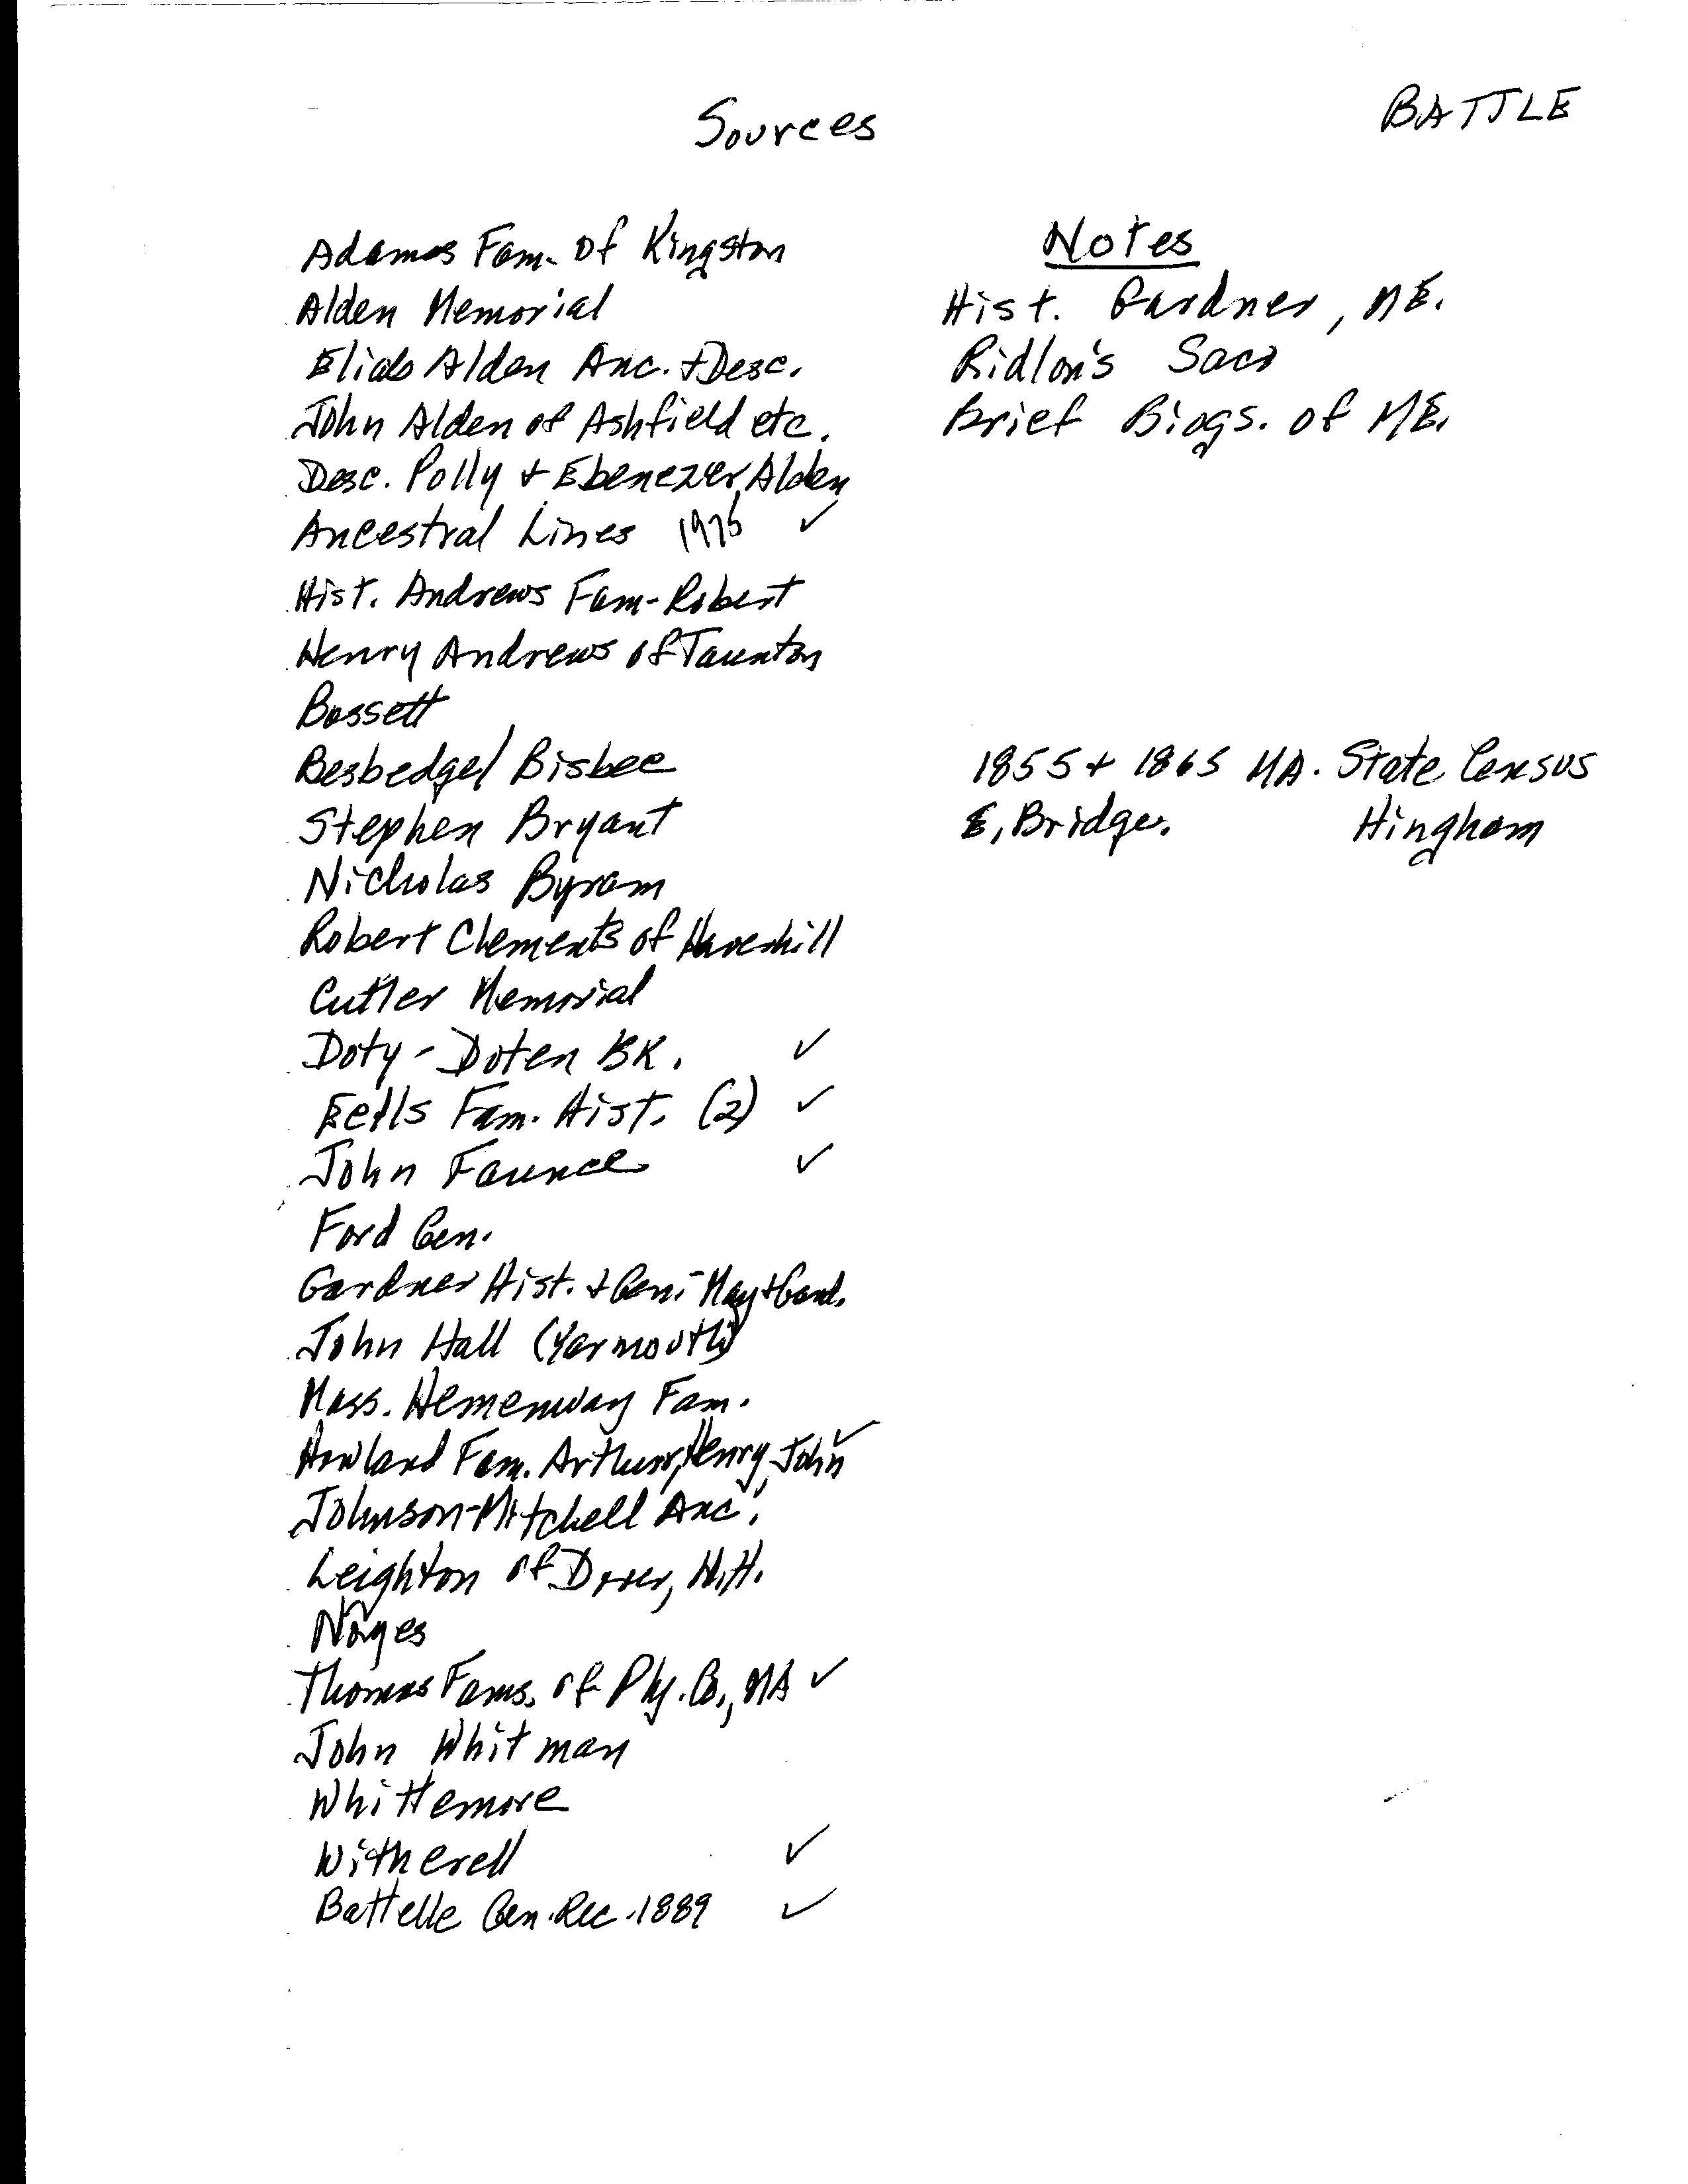 Sources
BATTLE
Adams Fam. of Kingston
Alden Memorial
Eliab Alden Anc. + Desc.
John Alden of Ashfield etc.
Desc. Polly + Ebenezer Alden
Ancestral Lines 1976 ✓
Hist. Andrews Fam - Robert
Henry Andrews of Taunton
Bassett
Besbedge/Bisbee
Stephen Bryant
Nicholas Byram
Robert Clements of Haverhill
Cutler Memorial
Doty - Doten BK. ✓
Eells Fam. Hist. (2) ✓
John Faunce ✓
Ford Gen.
Gardner Hist. + Gen. - May + Gard.
John Hall (Yarmouth)
Mass. Hemenway Fam.
Howland Fam. Arthur, Henry, John ✓
Johnson-Mitchell Anc.
Leighton of Dover, N.H.
Noyes
Thomas Fams. of Ply. Co., MA ✓
John Whitman
Whittemore
Witherell ✓
Battelle Gen. Rec. 1889 ✓
Notes
Hist. Gardner, ME.
Ridlon's Saco
Brief Biogs. of ME.
1855 + 1865 MA. State Census
E. Bridge. Hingham